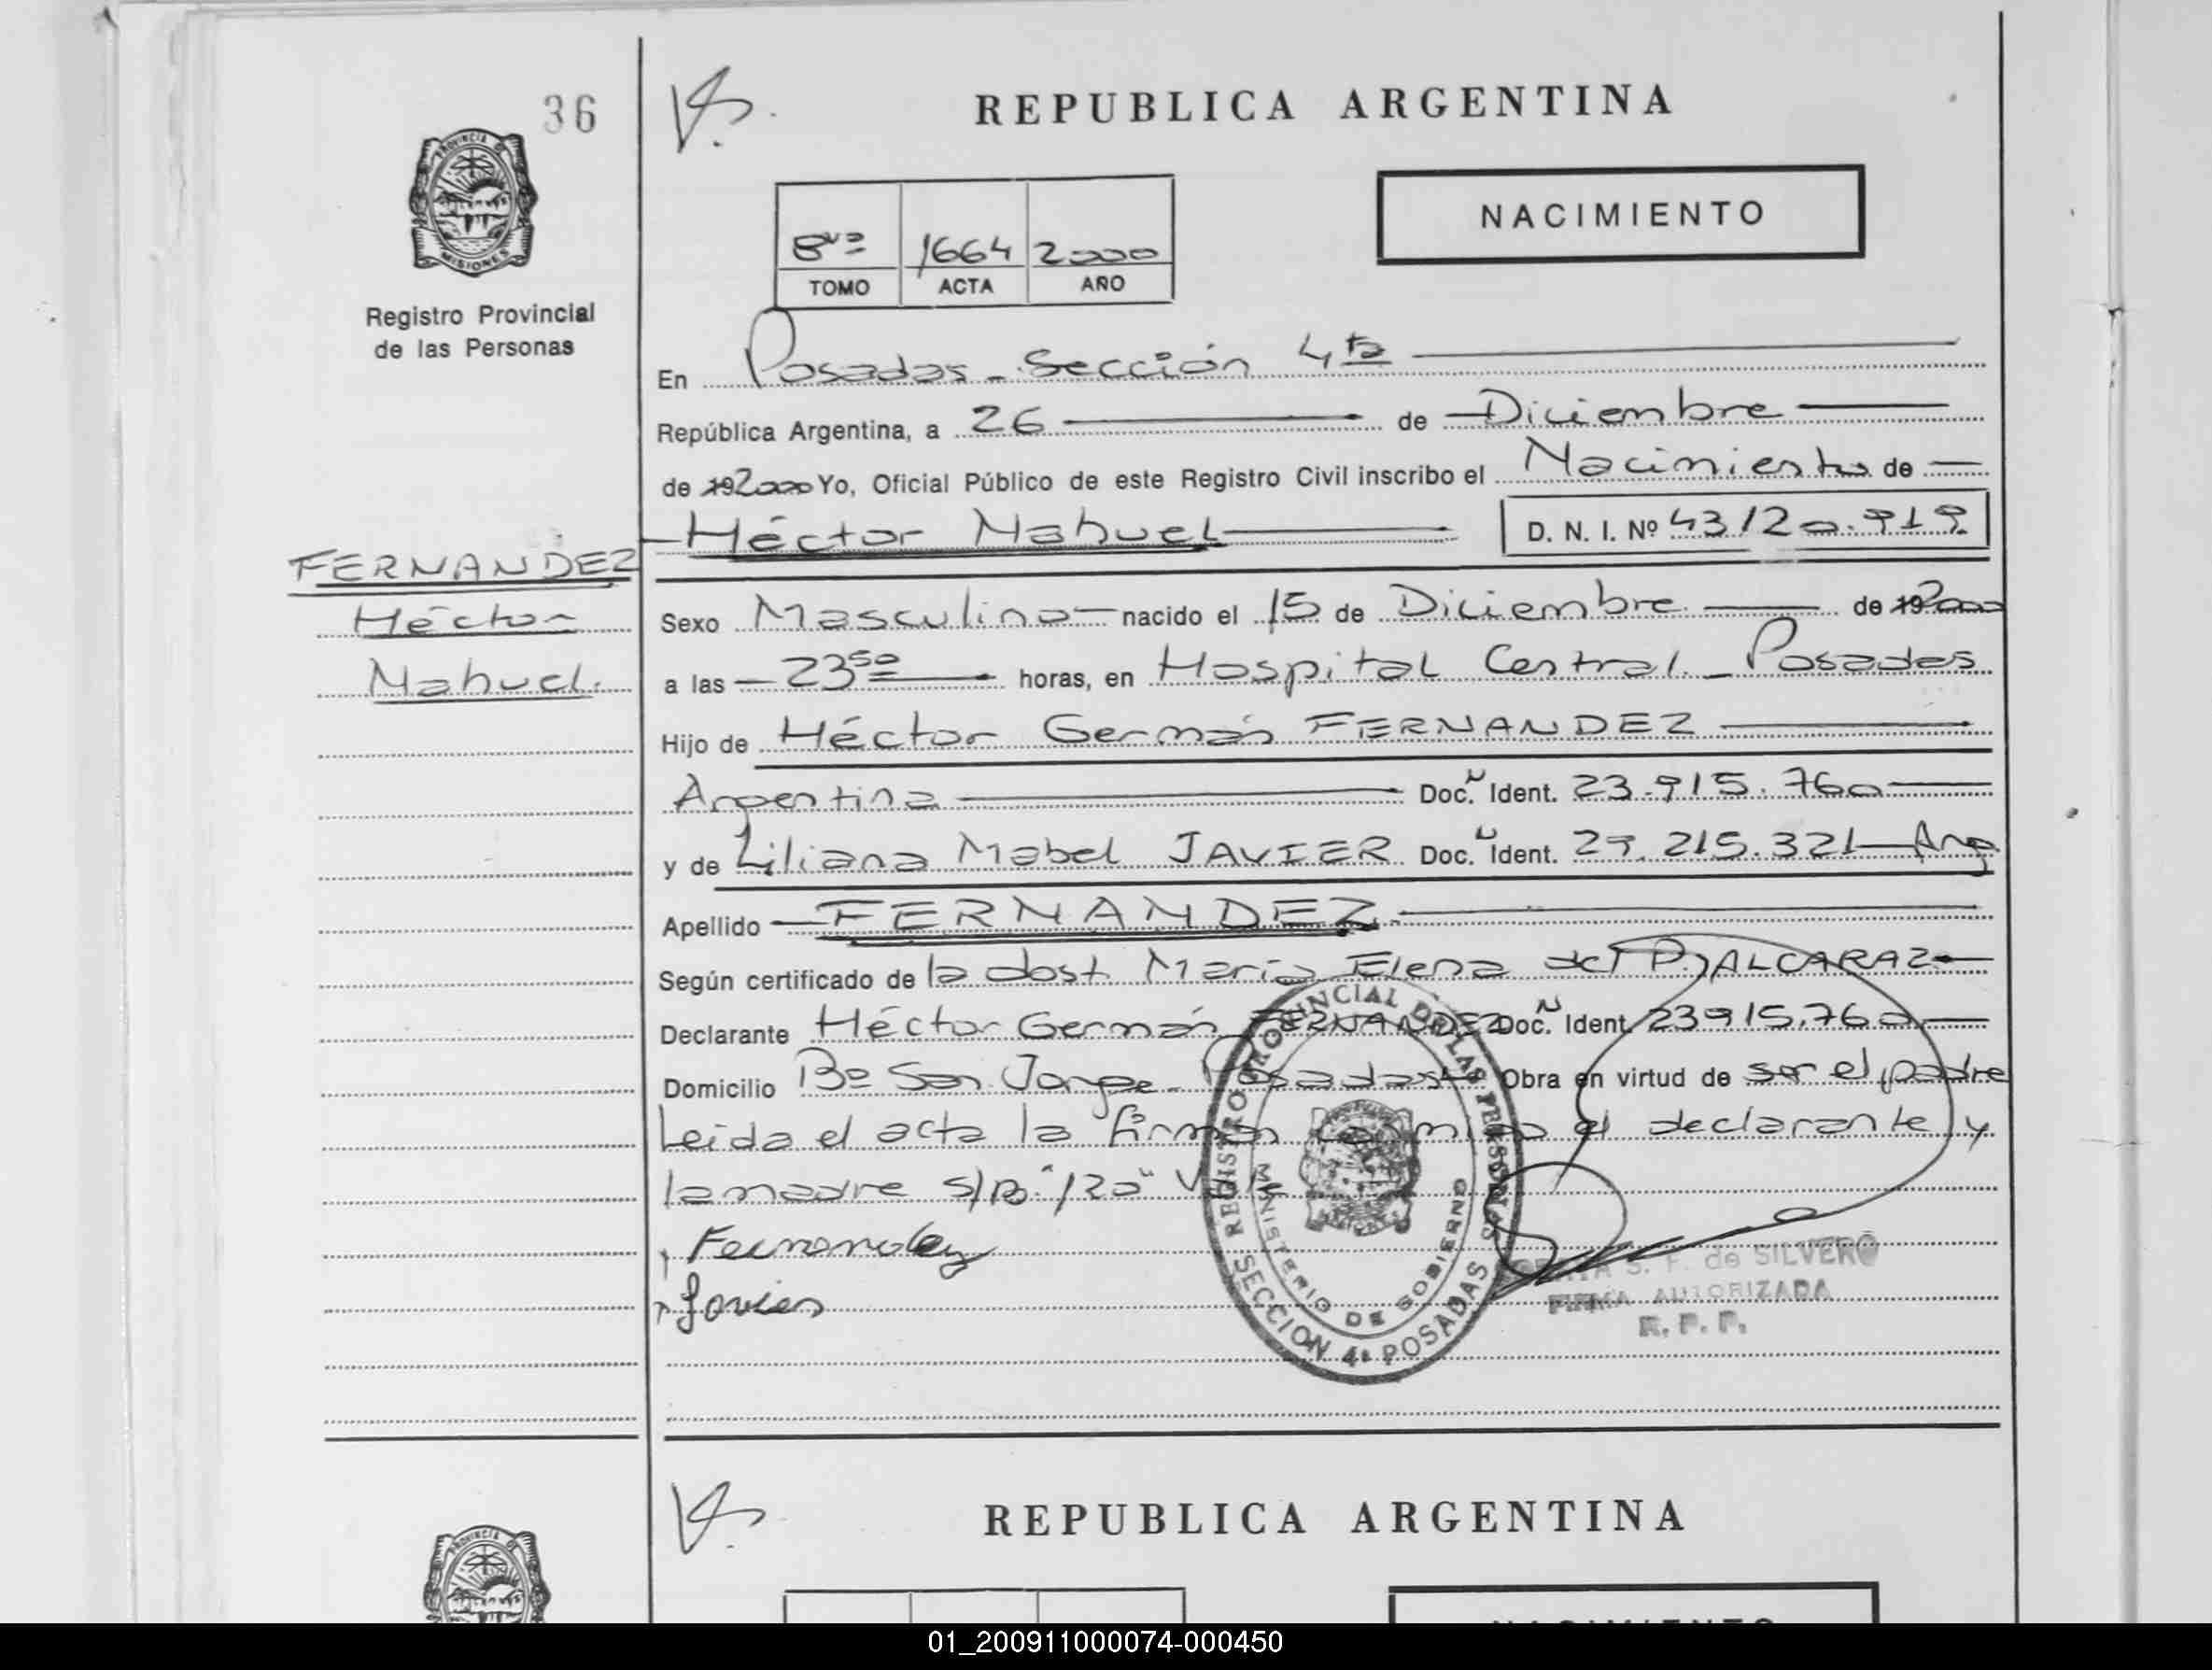 36
PROVINCIA DE
MISIONES
Registro Provincial
de las Personas
FERNANDEZ
Héctor
Nahuel.
REPUBLICA ARGENTINA
NACIMIENTO
8vo 1664 2000
TOMO ACTA AÑO
En Posadas - Sección 4ta
República Argentina, a 26 de Diciembre
de 192000 Yo, Oficial Público de este Registro Civil inscribo el Nacimiento de
Héctor Nahuel D. N. I. Nº 43120.919
Sexo Masculino nacido el 15 de Diciembre de 192000
a las 23 50 horas, en Hospital Central - Posadas
Hijo de Héctor Germán FERNANDEZ
Argentina Doc. N Ident. 23.915.760
y de Liliana Mabel JAVIER Doc. N Ident. 27.215.321 Arg
Apellido FERNANDEZ
Según certificado de la obst. María Elena del P. ALCARAZ
Declarante Héctor Germán FERNANDEZ Doc. N Ident. 23915.760
Domicilio Bº San Jorge - Posadas Obra en virtud de ser el padre
Leida el acta la firman conmigo el declarante y
la madre S/R "120" Vale
Fernandez
Javier
REGISTRO PROVINCIAL DE LAS PERSONAS
MINISTERIO DE GOBIERNO
SECCION 4ª POSADAS
S. F. de SILVERO
FIRMA AUTORIZADA
R. P. P.
REPUBLICA ARGENTINA
PROVINCIA DE
NACIMIENTO
01_200911000074-000450